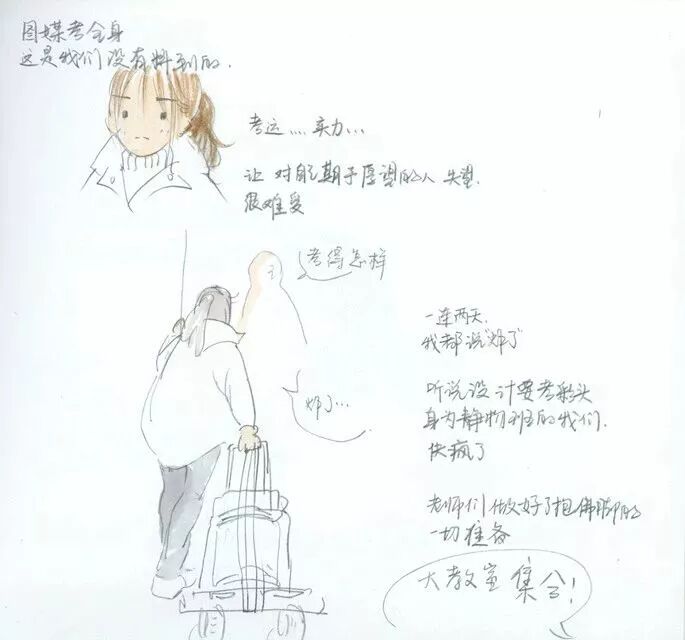 图媒考全身
这是我们没有料到的.
考运....实力...
让对自己期予厚望的人失望.
很难受
考得怎样
炸了...
一连两天,
我都说"炸了"
听说设计要考彩头
身为静物班的我们.
快疯了
老师们做好了抱佛脚的
一切准备
大教室集合!